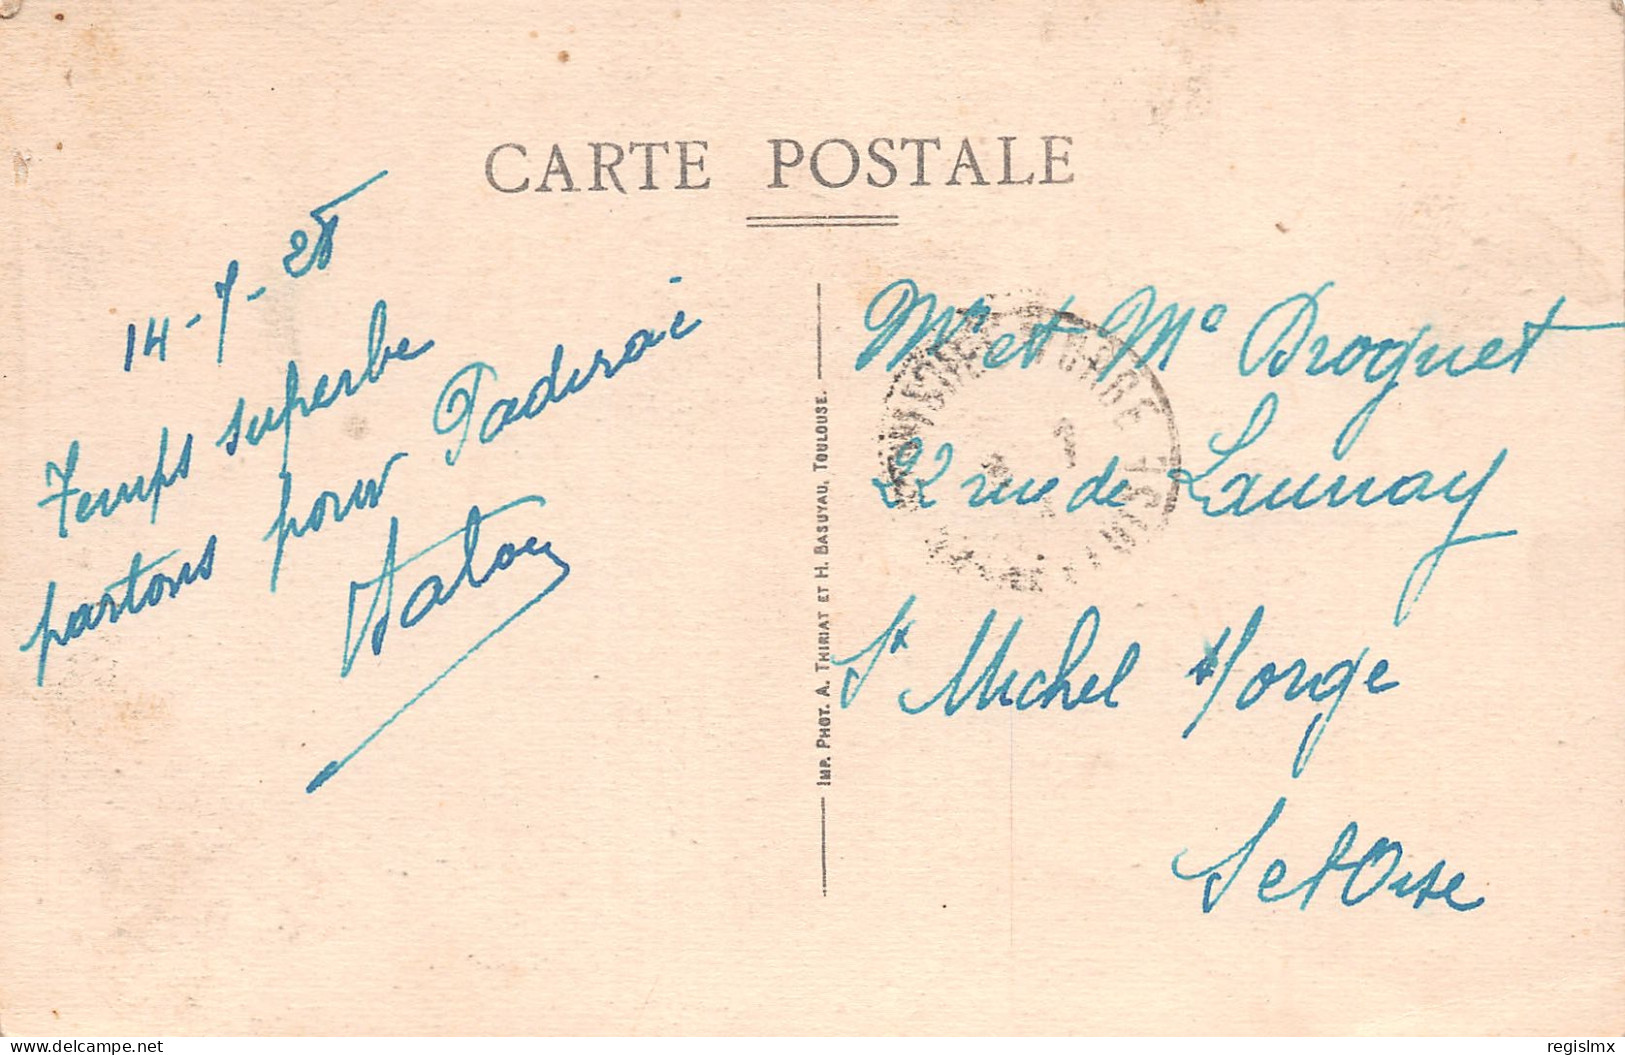 CARTE POSTALE
14-7-28
Temps superbe
partons pour Padirac
Mr et Me Droguet
22 rue de Launay
St Michel s/orge
S et Oise
IMP. PHOT. A. THIRIAT ET H. BASUYAU, TOULOUSE.
www.delcampe.net
regislmx